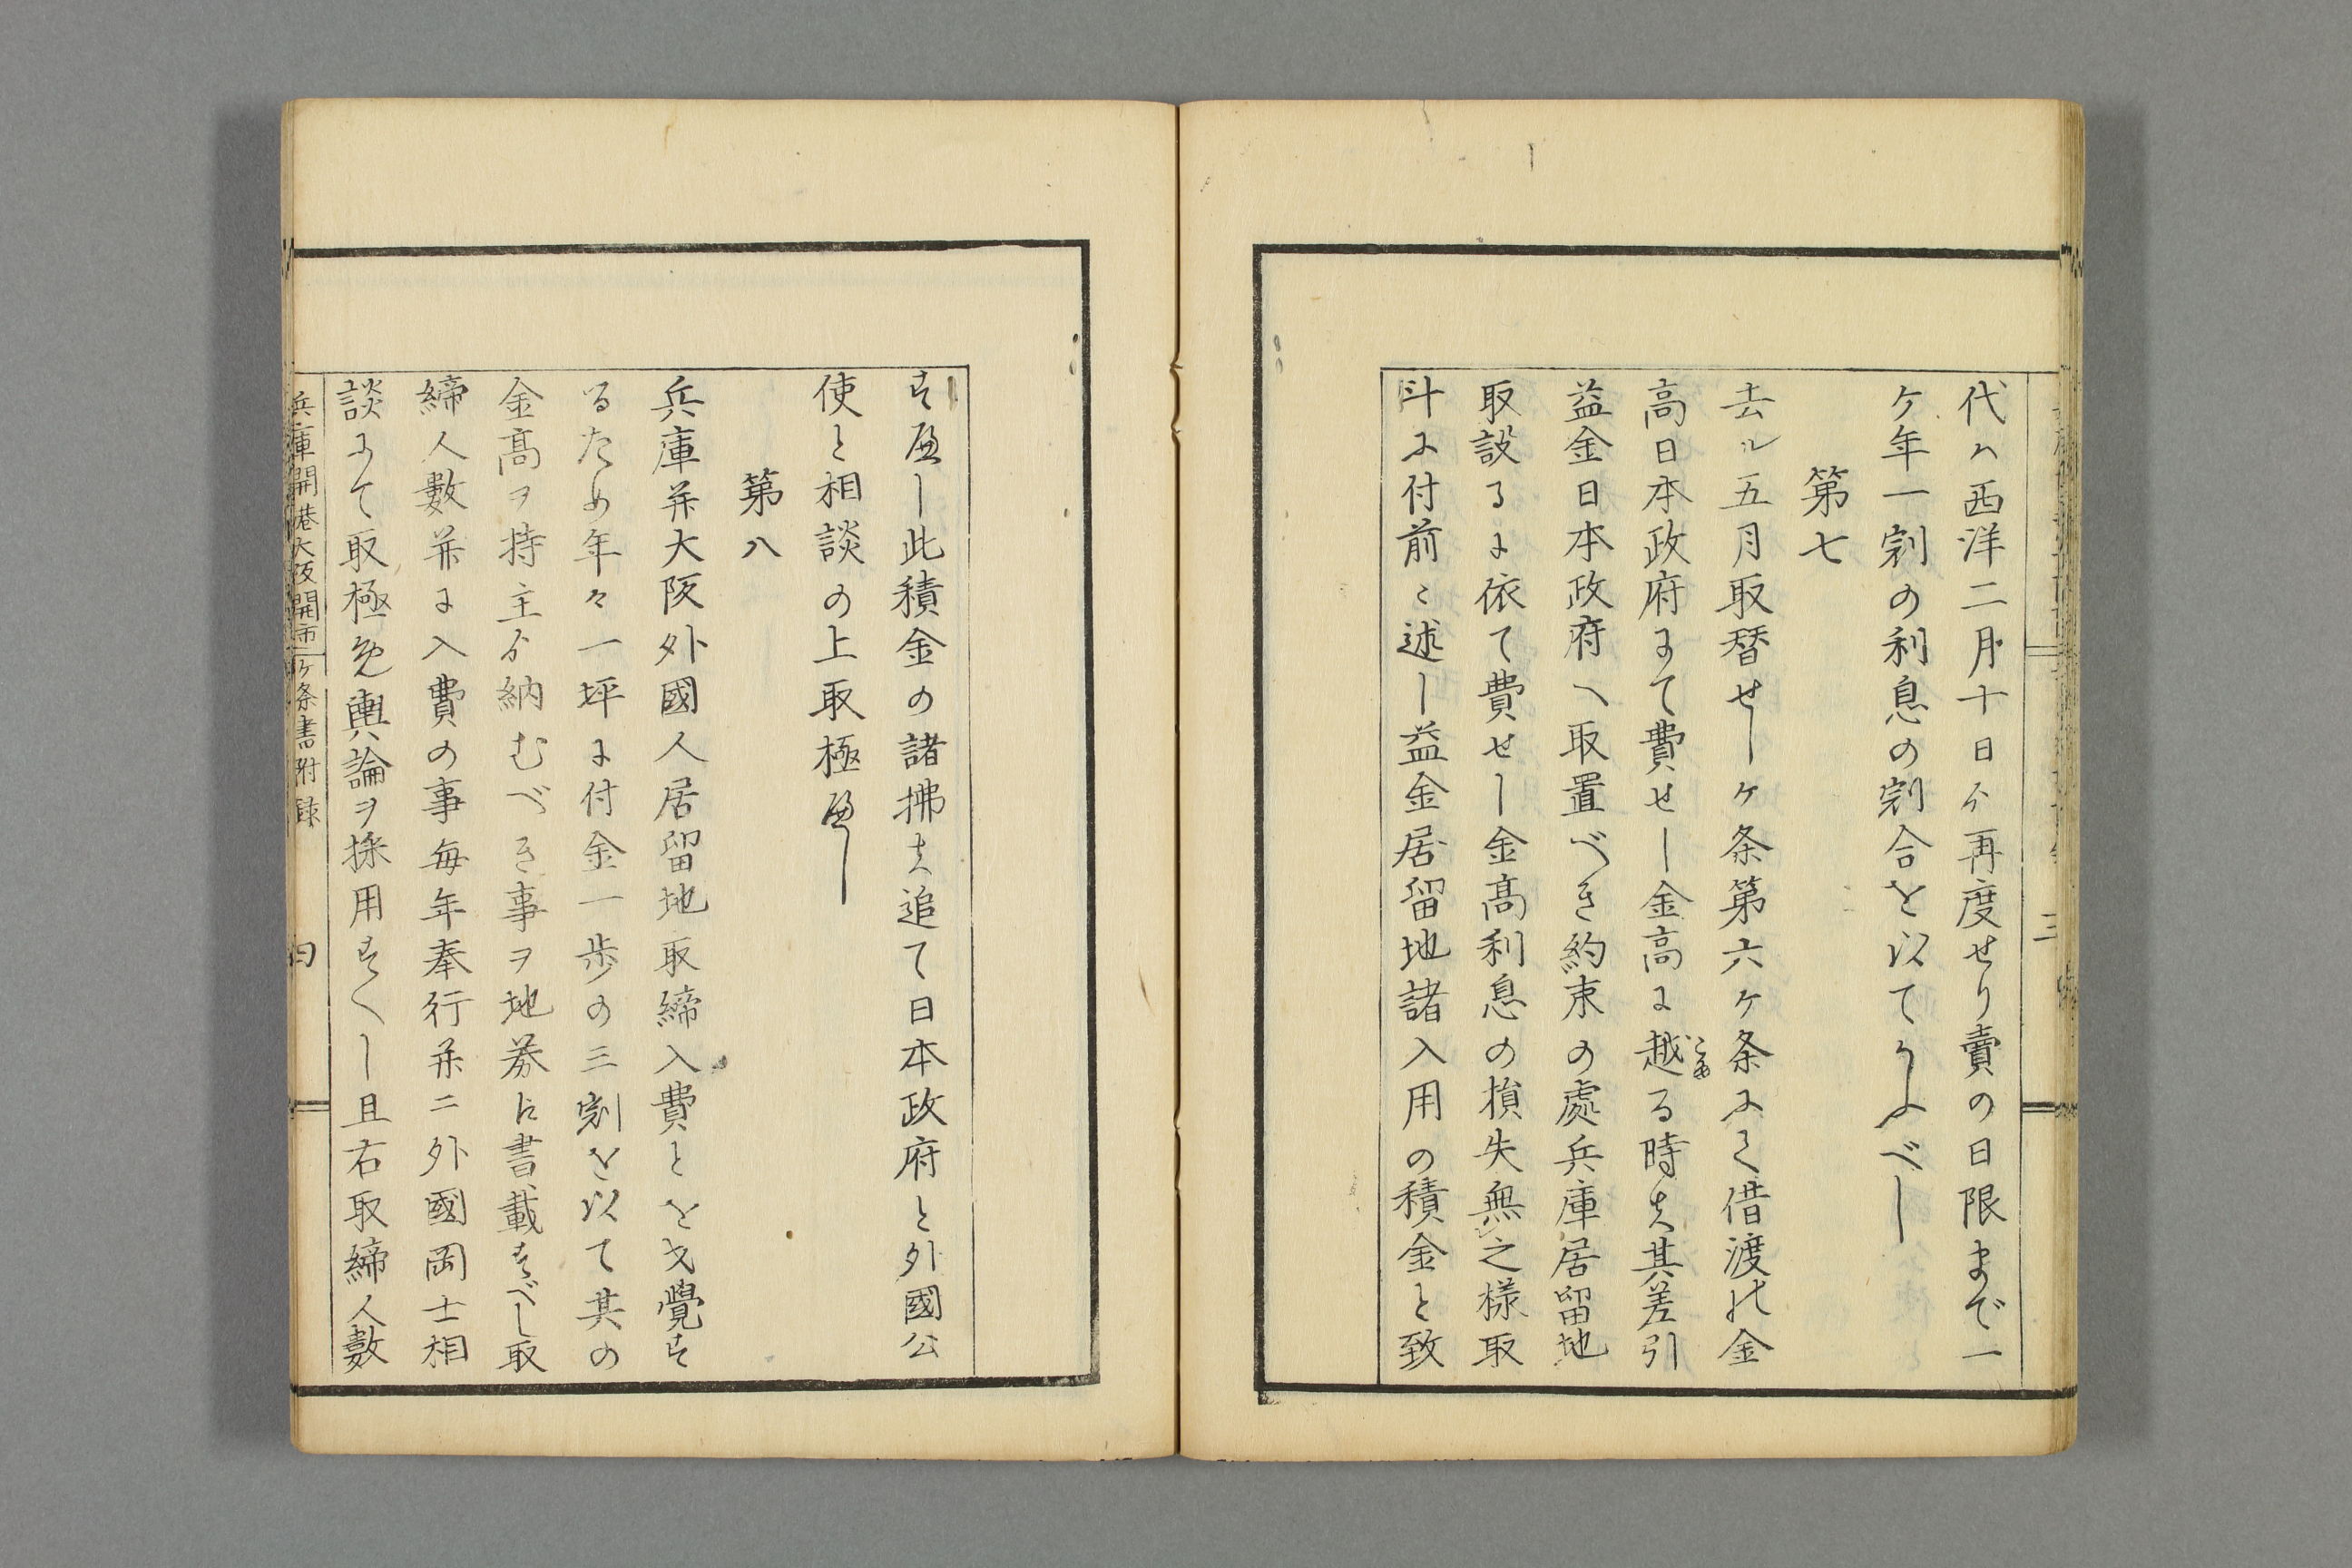 代ハ西洋二月十日ゟ再度せり賣の日限まで一
ケ年一割の利息の割合を以てうふべし
第七
去ル五月取替せしケ条第六ケ条にて借渡の金
高日本政府にて費せし金高に越る時は其差引
こゆ
益金日本政府へ取置べき約束の處兵庫居留地
取設るに依て費せし金高利息の損失無之様取
斗に付前ニ述し益金居留地諸入用の積金と致
すべし此積金の諸拂は追て日本政府と外國公
使と相談の上取極べし
第八
兵庫并大阪外國人居留地取締入費とを支覺す
るため年々一坪に付金一歩の三割を以て其の
金高ヲ持主ゟ納むべき事ヲ地券に書載すべし取
締人數并に入費の事毎年奉行并ニ外國岡士相
談にて取極免輿論ヲ採用すべし且右取締人數
兵庫開港大阪開市ケ条書附録